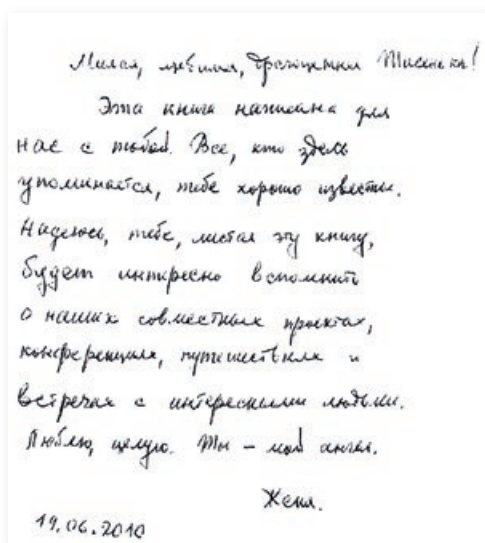 Милая, любимая, драгоценная !
Эта книга написана для
нас с тобой. Все, кто здесь
упоминается, тебе хорошо известны.
Надеюсь, тебе, листая эту книгу,
будет интересно вспомнить
о наших совместных проектах,
конференциях, путешествиях и
встречах с интересными людьми.
Люблю, целую. Ты – мой ангел.
Женя.
19.06.2010